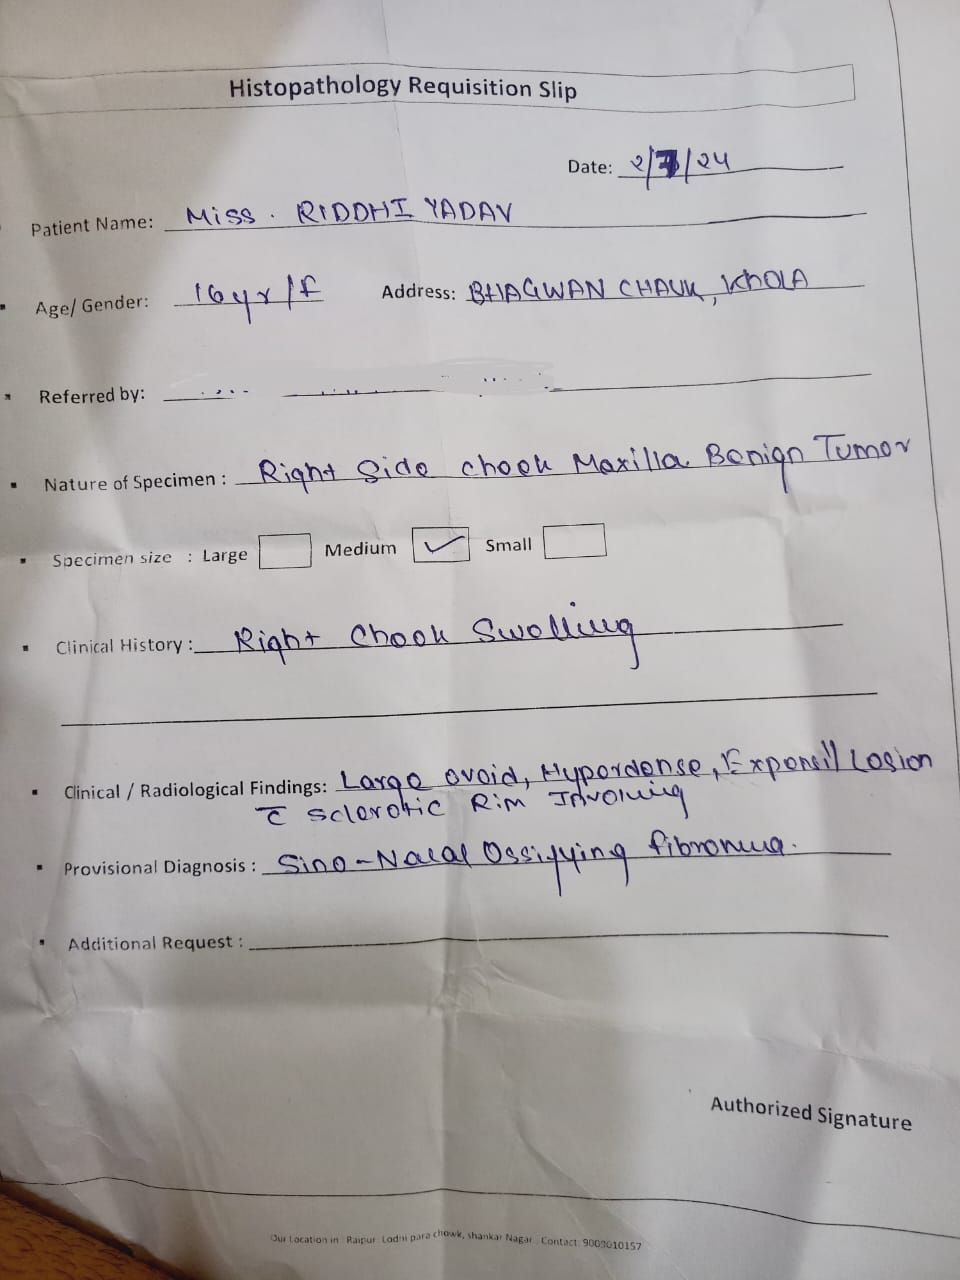 Histopathology Requisition Slip
Date: 2/7/24
Patient Name: Miss. RIDDHI YADAV
Age/ Gender: 16yr/f Address: BHAGWAN CHAUK, KhOLA
Referred by:
Nature of Specimen : Right Side cheek Maxilla Benign Tumor
Specimen size : Large Medium Small
Clinical History : Right Cheek Swelling
Clinical / Radiological Findings: Large ovoid, Hyperdense, Lesion
c̅ sclerotic Rim Involving
Provisional Diagnosis : Sino-Nasal Ossifying fibroma.
Additional Request :
Authorized Signature
Our Location in : Raipur Lodhi para chowk, shankar Nagar . Contact: 9003010157